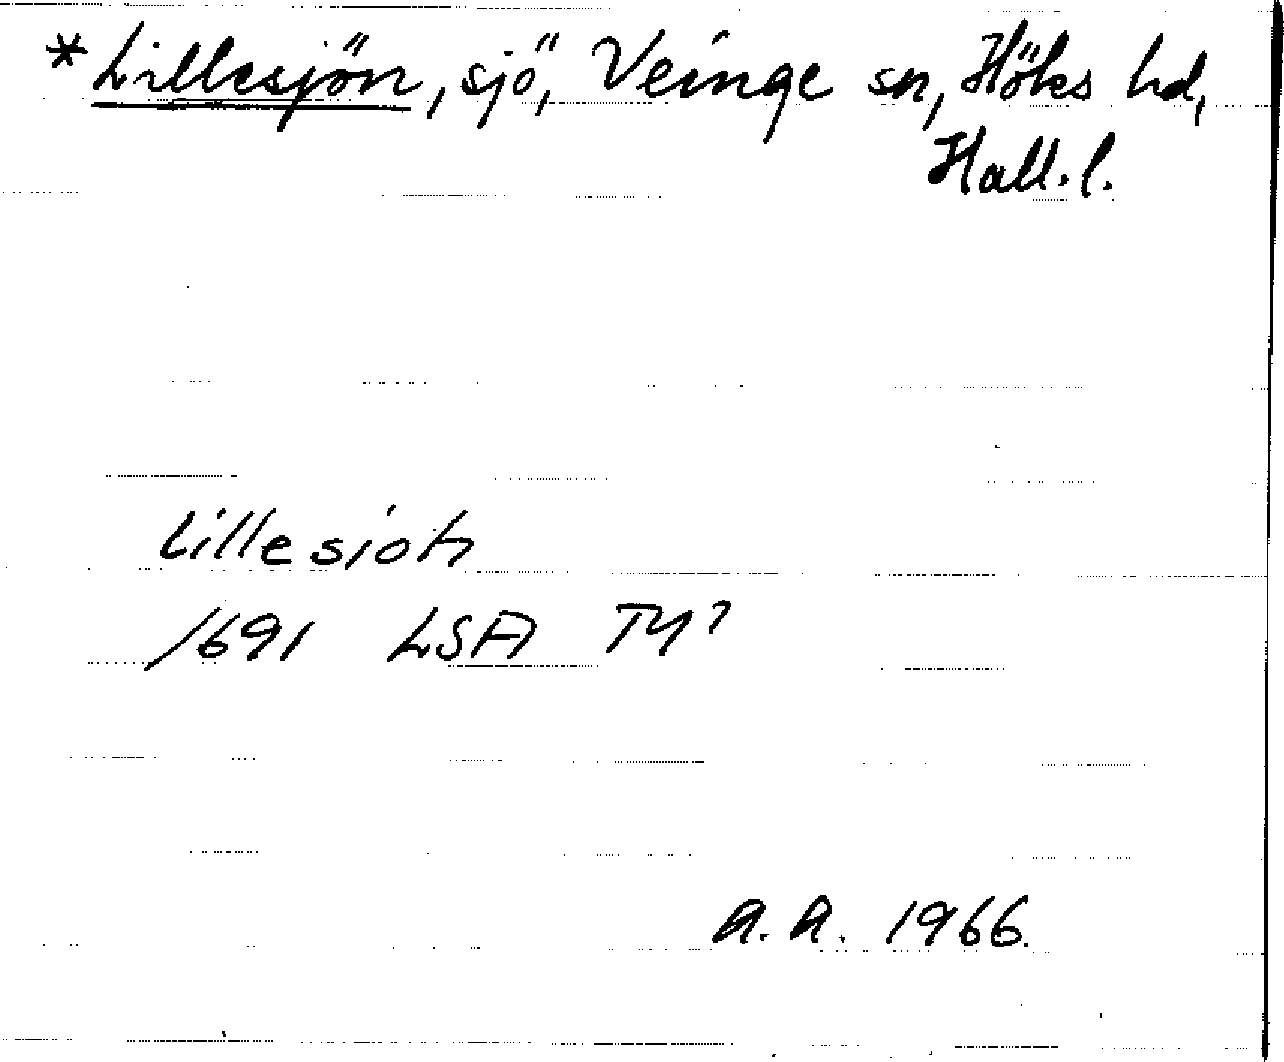 *Lillesjön, sjö, Veinge sn, Höks hd,
Hall.l.
Lillesiöh
1691 LSA TY7
A.A. 1966.